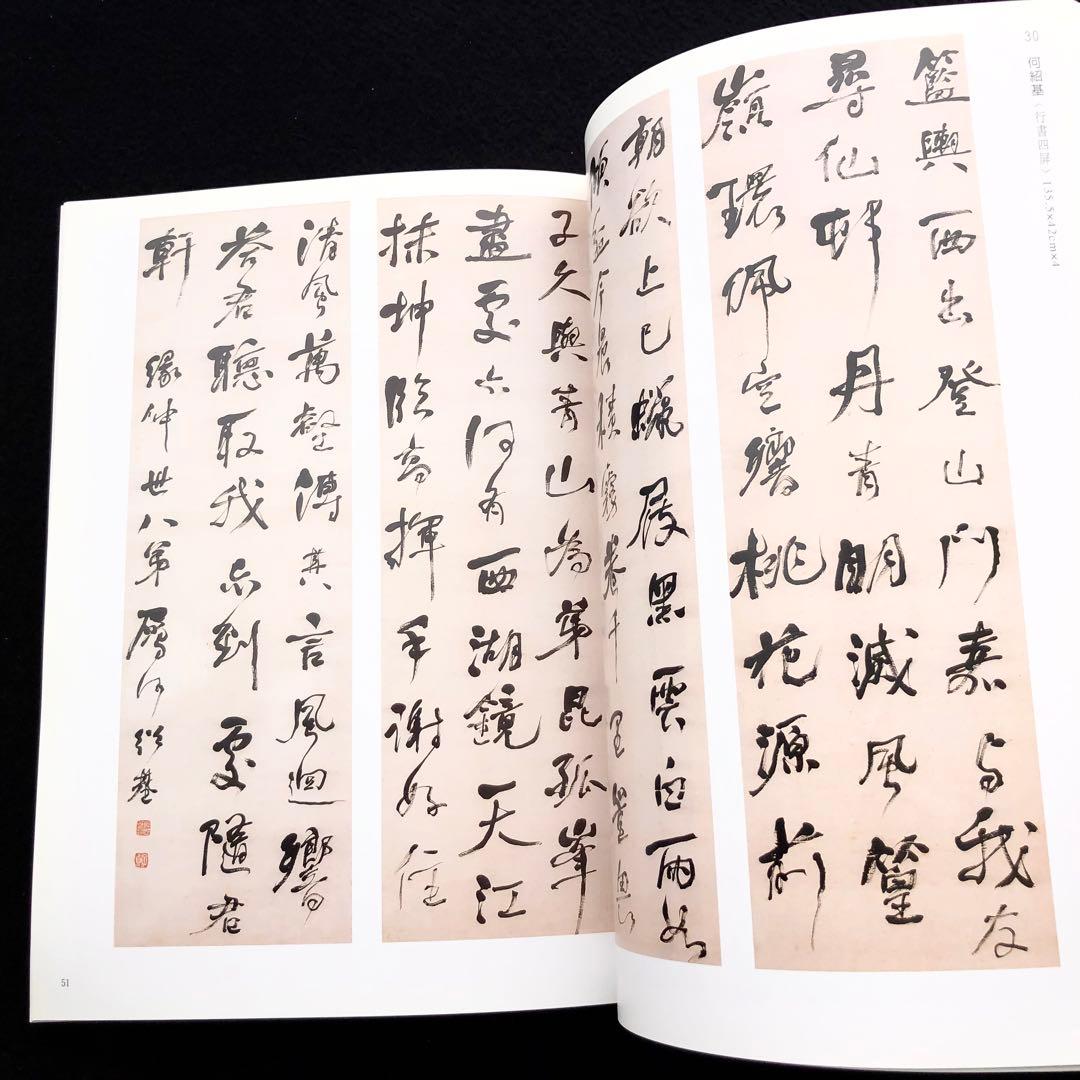 30 何紹基〈行書四屏〉135.5×42cm×4
籃輿西出登山門嘉与我友
尋仙村丹青明滅風篁
嶺環佩空響桃花源前
朝欲上巳蠟屐黑雲白雨如
傾盆今晨積霧卷千里豈
子久與青山為弟昆孤峯
盡處亦何有西湖鏡天江
抹坤臨高揮手謝好住
清風萬壑傳其言風迴響
答君聽取我亦到處隨君
軒 緣仲世八弟屬何紹基
51